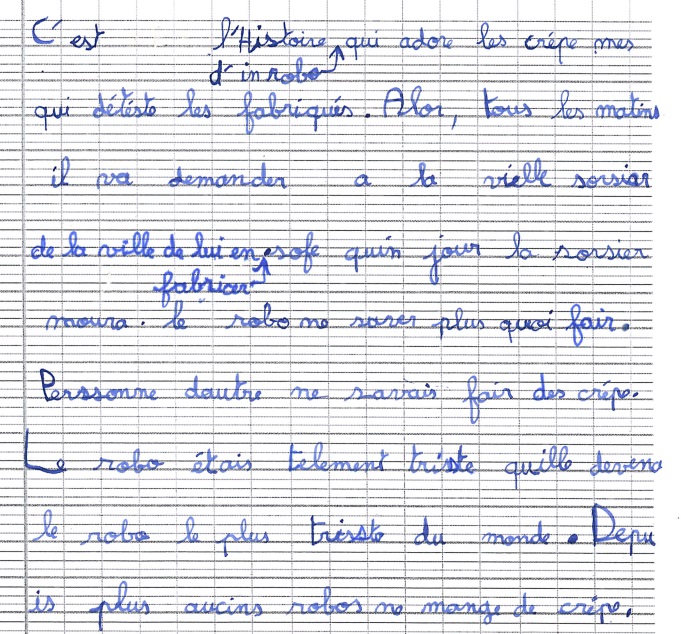 C'est l'Histoire qui adore les crêpe mes
d'in robo
qui détéste les fabriqués. Alor, tous les matins
il va demander a la vielle sorsier
de la ville de lui en sofe quin jour la sorsier
fabricer
moura. le robo ne saver plus quoi fair.
Perssonne dautre ne savais fair des crêpe.
Le robo étais telement triste quille devena
le robo le plus trisste du monde. Depu
is plus aucins robos ne mange de crêpe.